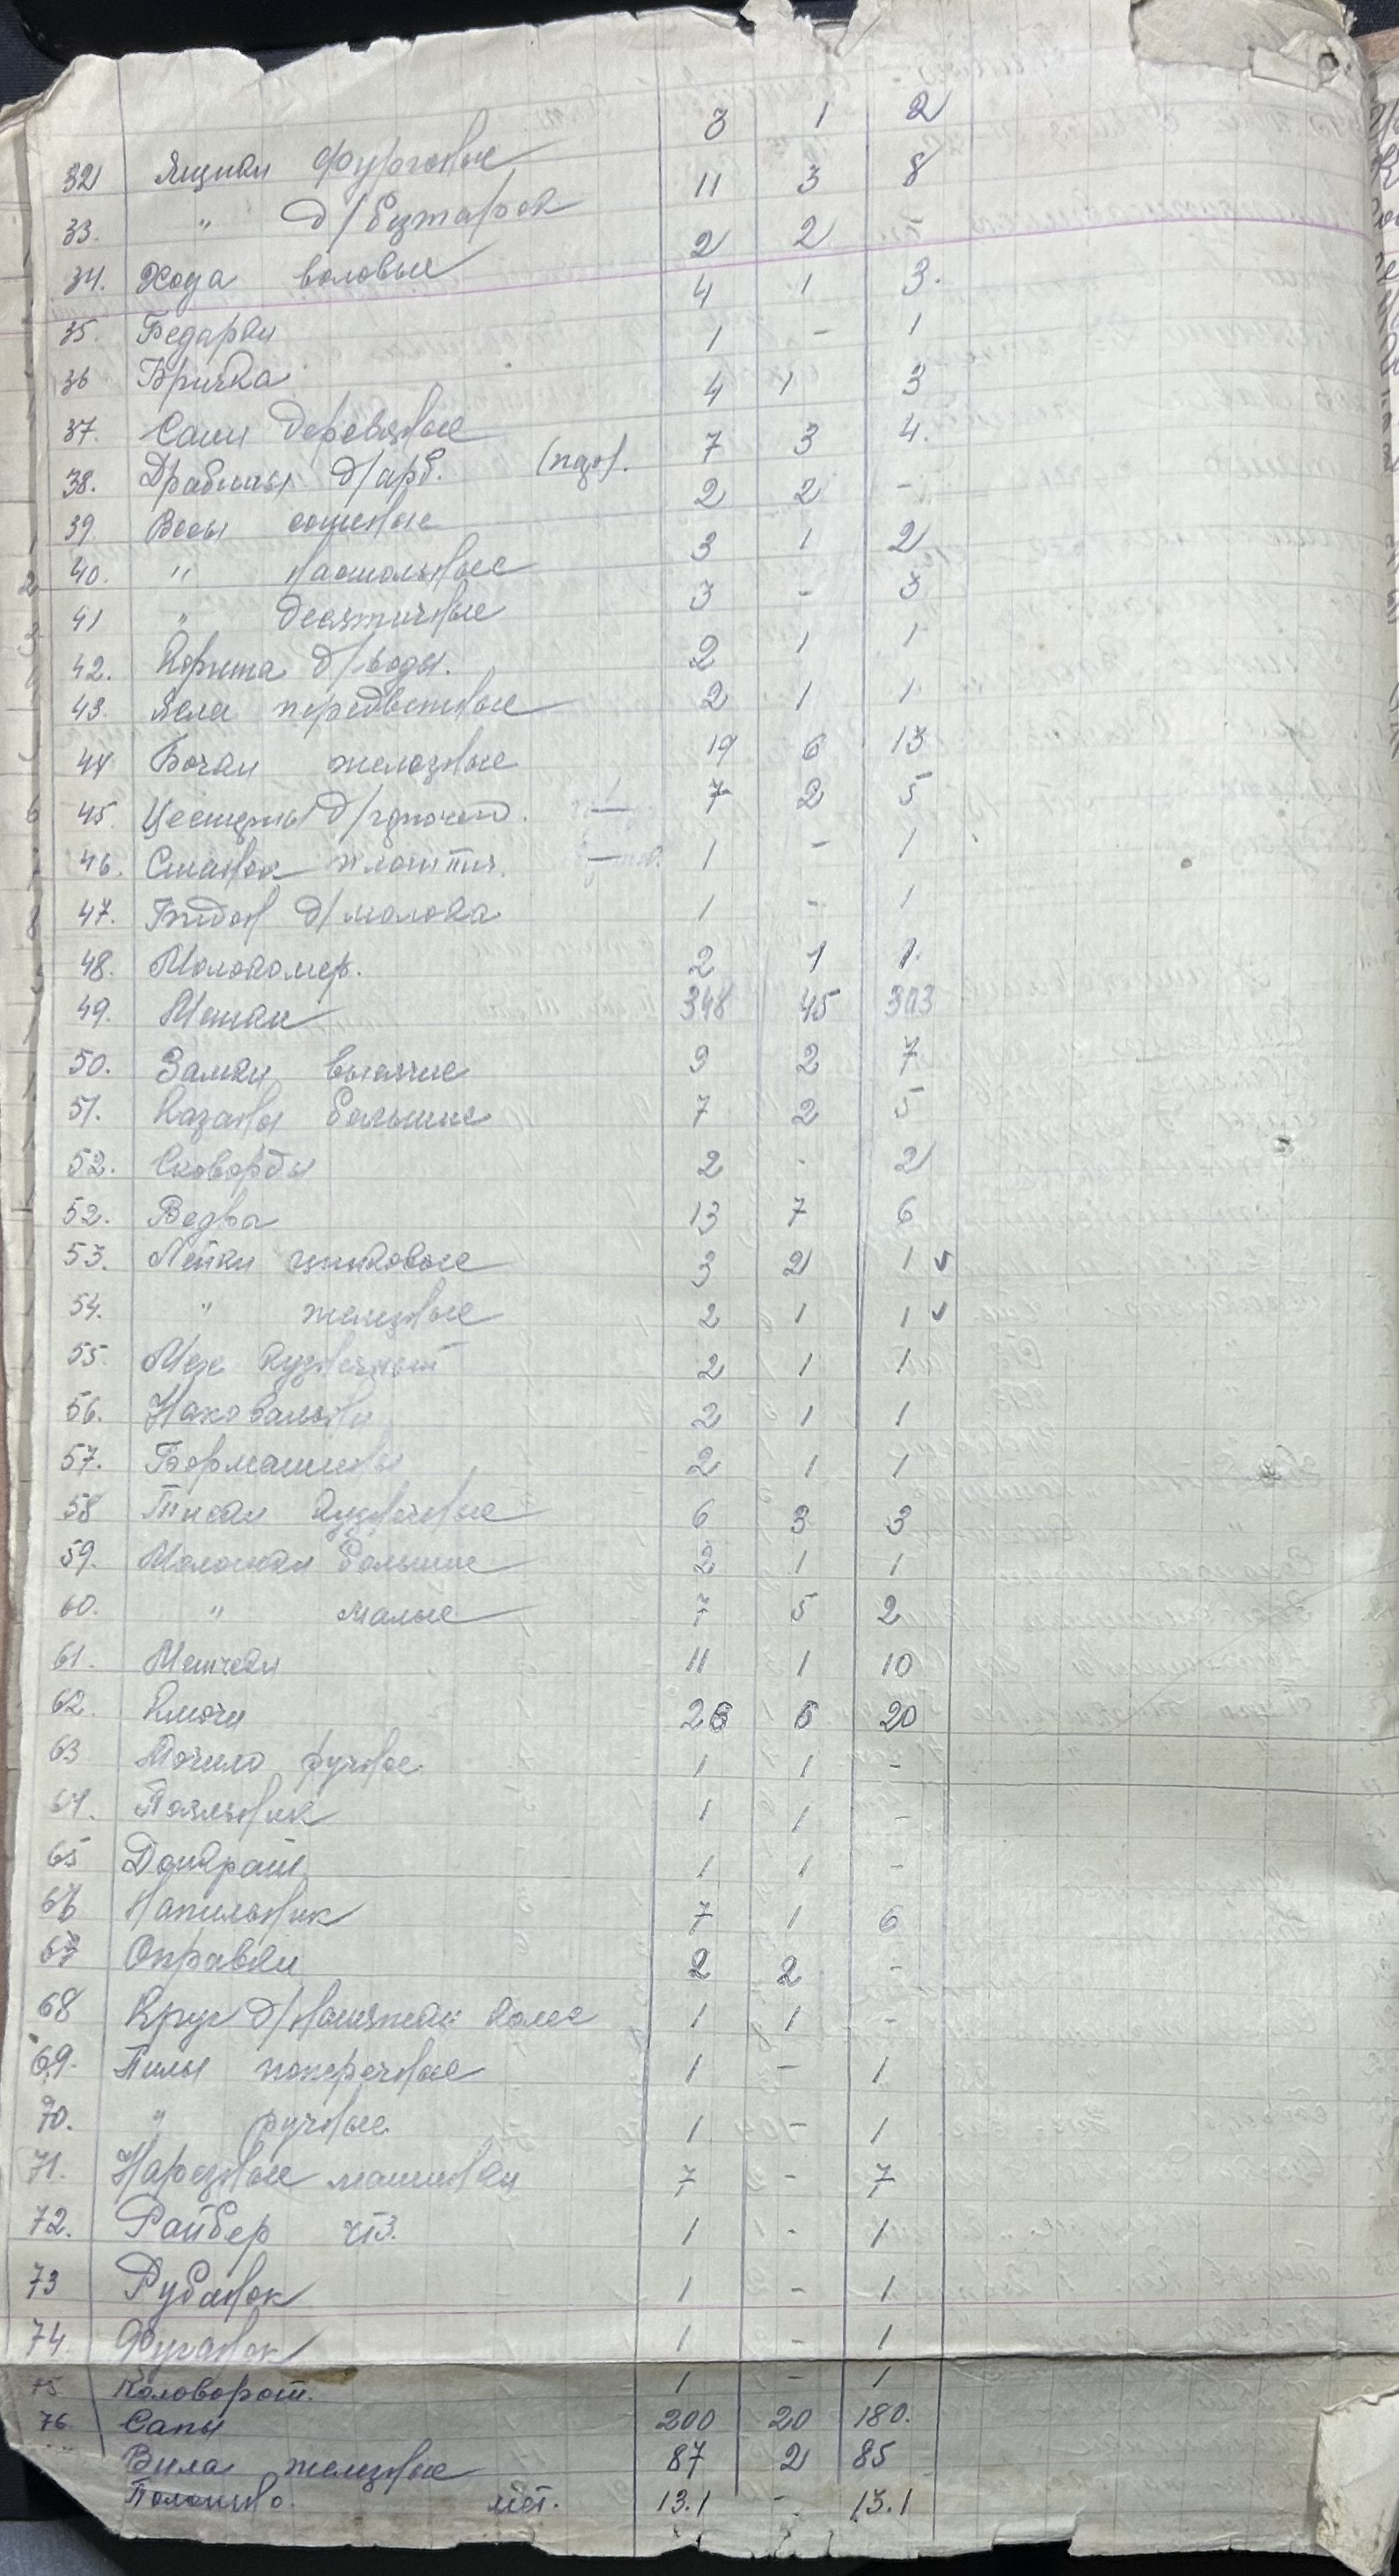 3 1 2
32 Ящики фургоные 11 3 8
33. " д/бутарок 2 2 -
34. Хода воловые 4 1 3.
35. Бедарки 1 - 1
36 Бричка 4 1 3
37. Сани деревяные 7 3 4.
38. Драбины д/арб. 2 2 -
39 Весы сотеные 3 1 2
40. " настольные 3 - 3
41 " десятичные 2 1 1
42. Корыта д/воды. 2 1 1
43. Ясла передветные 19 6 13
44 Бочки железные 7 2 5
45. Цестерны д/ 1 - 1
46. Станок 1 - 1
47. Бидон д/молока 2 1 1.
48. Молокомер. 348 45 303
49. Мешки 9 2 7
50. Замки высячие 7 2 5
51. Казаны большие 2 - 2
52. Сковорды 13 7 6
52. Ведра 3 2 1 ✓
53. Лейки цинковые 2 1 1 ✓
54. " железные 2 1 1
55. Мех кузнечный 2 1 1
56. Наковальни 2 1 1
57. Бормашины 6 3 3
58 Тиски кузнечные 2 1 1
59. Молотки большие 7 5 2
60. " малые 11 1 10
61. Метчеки 26 6 20
62. Ключи 1 1 -
63 Точило ручное 1 1 -
64. Паяльник 1 1 -
65 Домкрат 7 1 6
66 Напильник 2 2 -
67 Оправки 1 1 -
68 Круг д/натяжки колес 1 - 1
69. Пилы поперечные 1 - 1
70. " ручные 7 - 7
71. Нарезные машинки 1 - 1
72. Райбер 1 - 1
73 Рубанок 1 - 1
74. Фуганок 1 - 1
75 Коловорот. 200 20 180.
76. Сапы 87 2 85
Вила железные 13.1 - 13.1
Полотно. мет.